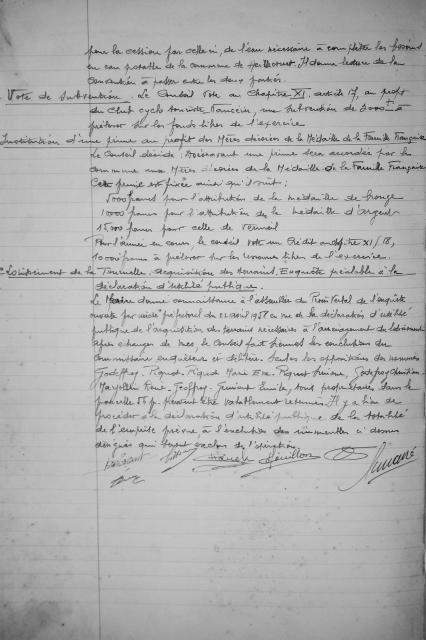 pour la cession par celle ci, de l'eau nécessaire à compléter les besoins
en eau potable de la commune de Heillecourt. Il donne lecture de la
convention à passer entre les deux parties.
Vote de Subvention. Le Conseil Vote au Chapitre XI, article 17, au profit
du Club cyclo touriste Nancéien, une subvention de
prélever sur les fonds libres de l'exercice
Institution d'une prime au profit des Mères décorées de la Médaille de la Famille Française
Le Conseil décide: Désormais une prime sera accordée par la
commune aux Mères décorées de la Médaille de la Famille Française
Cette prime est fixée ainsi qu'il suit:
5000 francs pour l'attribution de la médaille de bronze
10000 francs pour l'attribution de la médaille d'argent
15000 francs pour celle de Vermeil
Pour l'année en cours, le conseil vote un Crédit au chapitre XI/18,
à prélever sur les ressources libres de l'exercice.
Lotissement de la Tournelle. Acquisition des terrains. Enquête préalable à la
déclaration d'utilité publique.
Le Maire donne connaissance à l'assemblée du Procès Verbal de l'enquête
ouverte par arrêté préfectoral du 21 avril 1958 en vue de la déclaration d'utilité
publique de l'acquisition des terrains nécessaires à l'aménagement du lotissement
après échanges de vues, le Conseil fait siennes les conclusions du
commissaire enquêteur et délibère. Seules les oppositions des nommés
Godffroy. Piquot. Piquot Marie Eve. Piquot
Marjollin René, Geoffroy. tous propriétaires dans la
parcelle peuvent être valablement retenues. Il y a lieu de
procéder à la déclaration d'utilité publique de la totalité
de l'emprise prévue à l'exclusion des immeubles ci dessus
désignés qui seront exclus de l'opération.